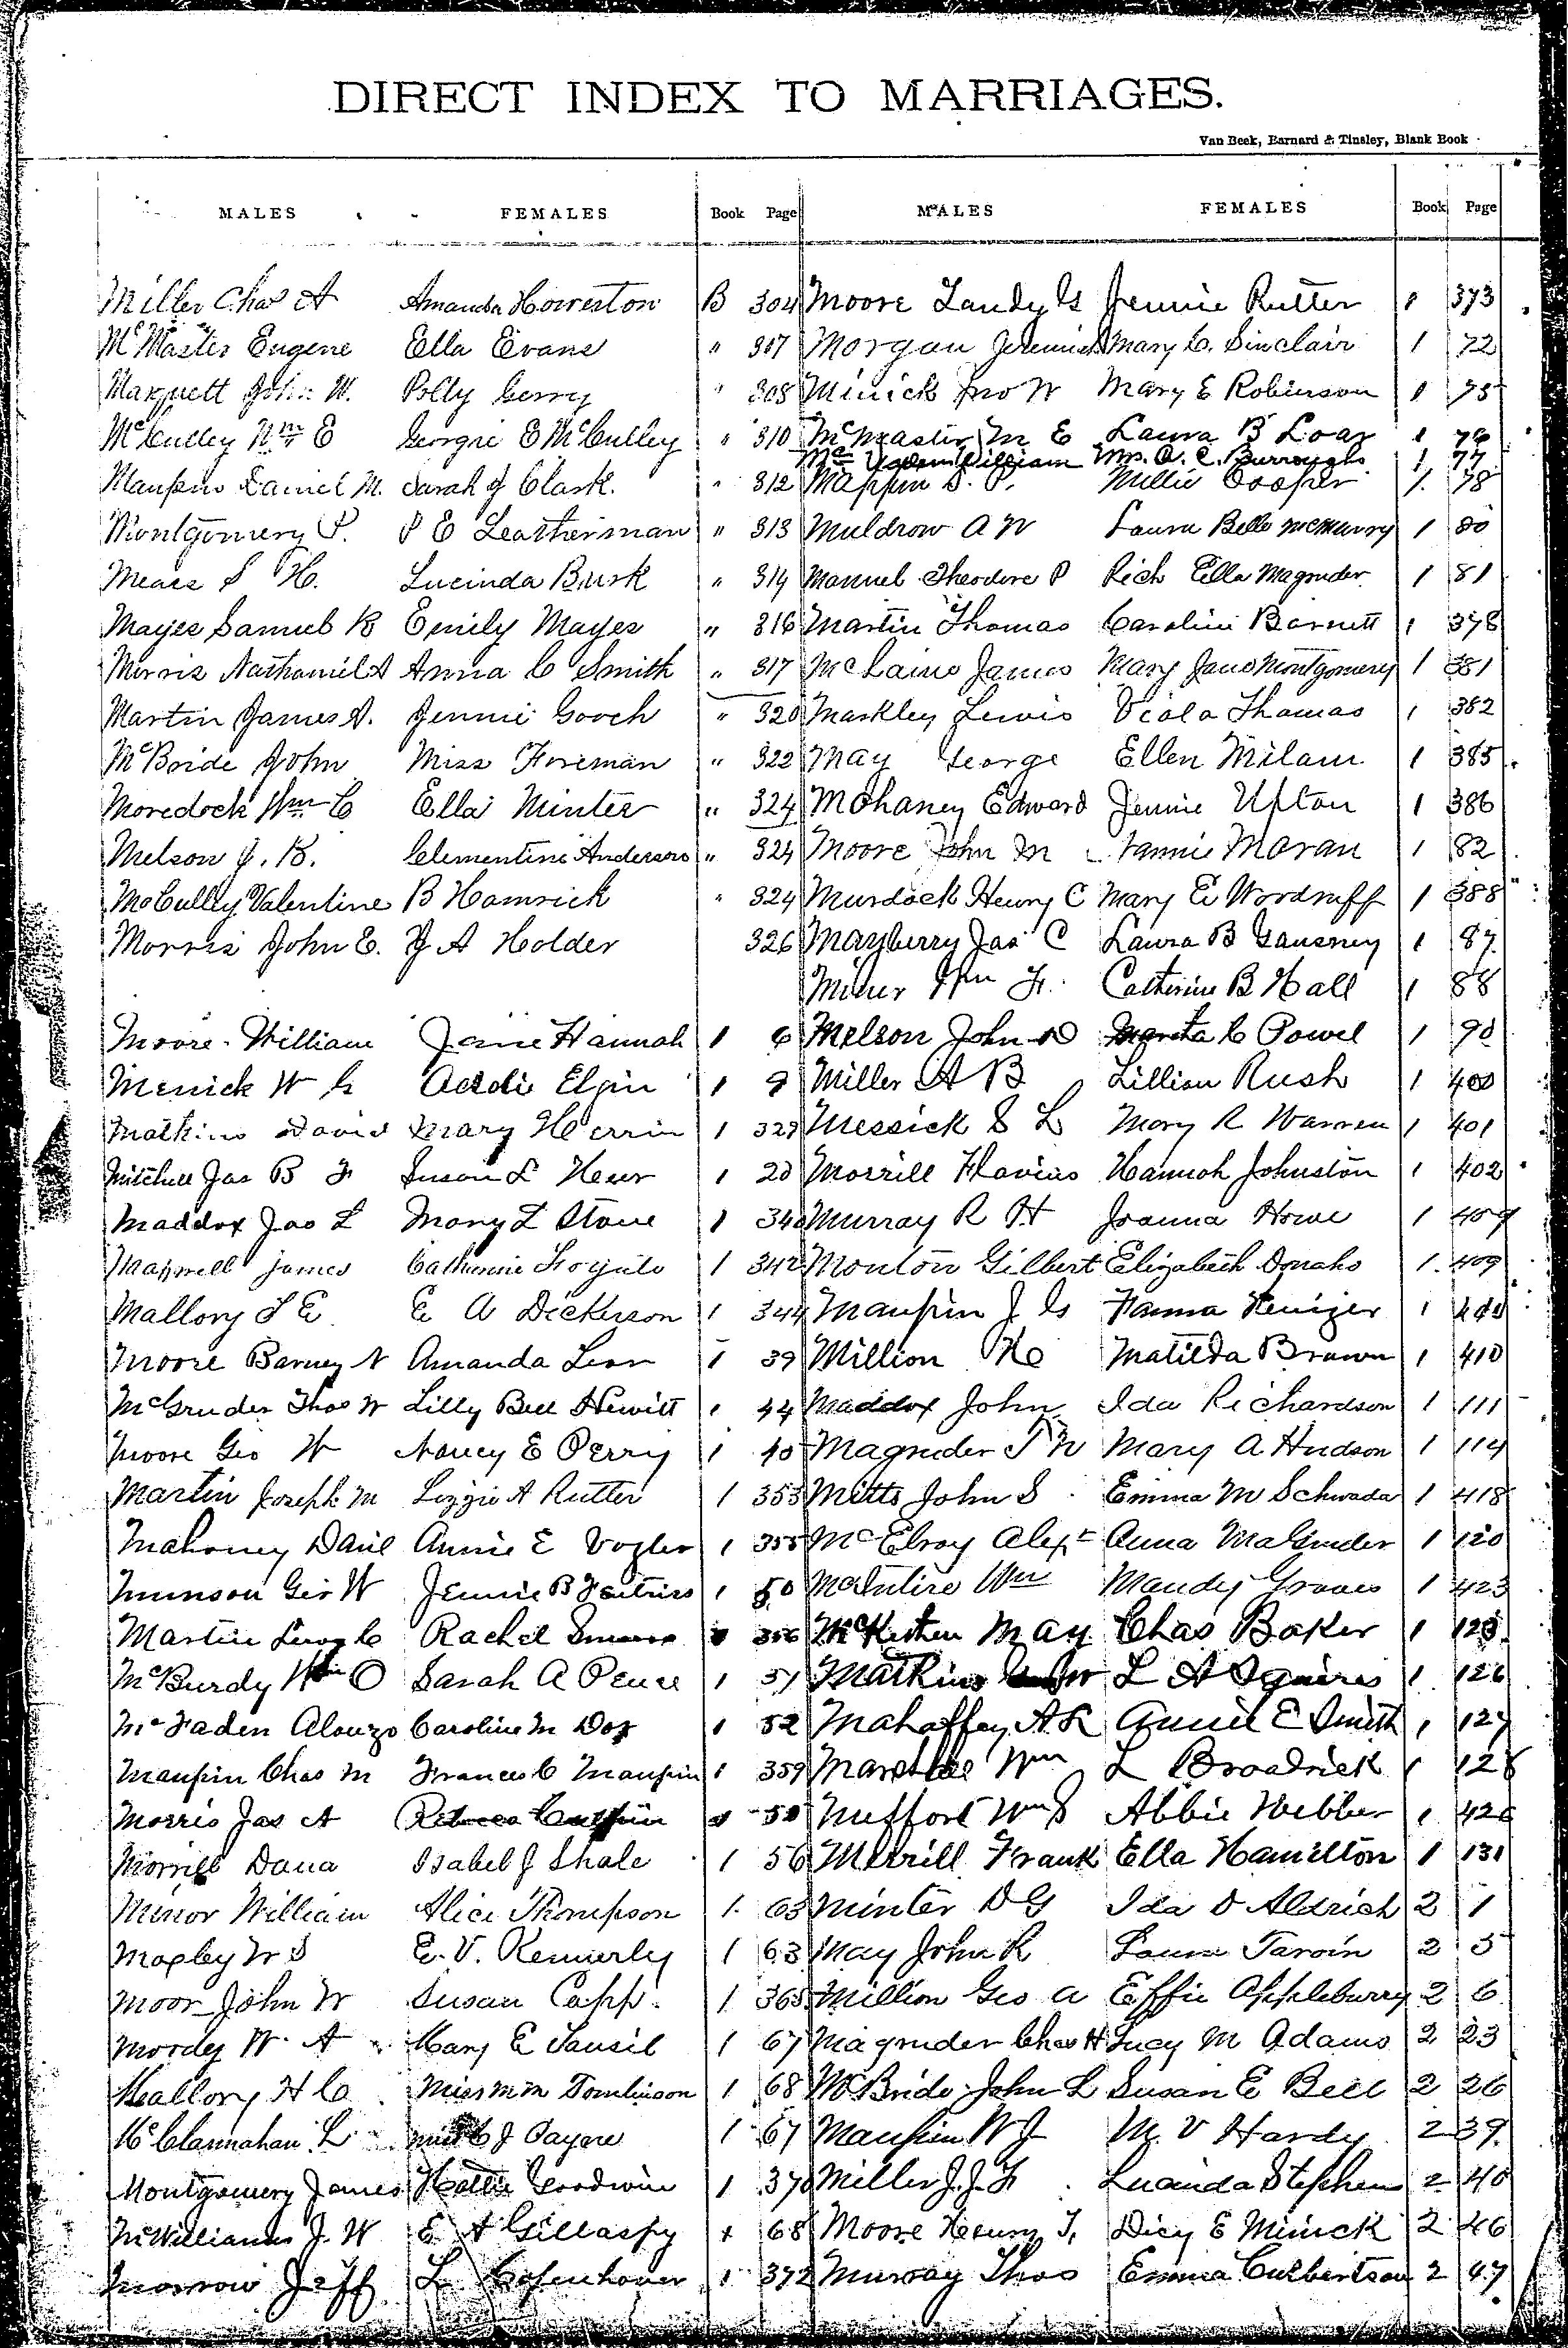 DIRECT INDEX TO MARRIAGES.
Van Beek, Barnard & Tinsley, Blank Book
MALES FEMALES Book Page MALES FEMALES Book Page
Miller Chas A Amanda Howerton B 304 Moore Landy G Jennie Rutter 1 373
McMaster Eugene Ella Evans " 307 Morgan Jeremiah Mary C. Sinclair 1 72
John W. Polly Gerry " 308 Minick Jno W Mary E Robinson 1 75
McCulley Wm E Georgie E McCulley " 310 McMaster M E Laura B Loar 1 76
William Mrs. A. C. Burroughs 1 77
Maupin Daniel M. Sarah J Clark. " 312 Mappin S. P. Millie Cooper 1 78
Montgomery P. P E Leatherman " 313 Muldrow A W Laura Belle McMurry 1 80
Meads S H. Lucinda Burk " 314 Manuel Theodore P Rich Ella Magruder 1 81
Mayes Samuel K Emily Mayes " 316 Martin Thomas Caroline Barnett 1 378
Morris Nathaniel A Anna C Smith " 317 McClaine James Mary Jane Montgomery 1 381
Martin James A. Jennie Gooch " 320 Markley Lewis Viola Thomas 1 382
McBride John Miss Foreman " 322 May George Ellen Milam 1 385
Moredock Wm C Ella Minter " 324 Mohaney Edward Jennie Upton 1 386
Melson J. K. Clementine Anderson " 324 Moore John M Nannie Moran 1 82
McCulley Valentine B Hamrick " 324 Murdock Henry C Mary E Woodruff 1 388
Morris John E. J A Holder 326 Mayberry Jas C Laura B Gausney 1 87
Miner Wm F. Catherine B Hall 1 88
Moore William Jane Hannah 1 6 Melson John D C Powel 1 90
Menick W G Addi Elgin 1 9 Miller A B Lillian Rush 1 400
Matkins David Mary Herrin 1 329 Messick S L Mary R Warren 1 401
Mitchell Jas B F Susan L 1 20 Morrill Flavius Hannah Johnston 1 402
Maddox Jas L Mary L Stone 1 340 Murray R H Joanna Howe 1 409
Maxwell James Catherine 1 342 Monton Gilbert Elizabeth Donaho 1 409
Mallory L E E A Dickerson 1 344 Maupin J G Fanna 1
Moore Barney N Amanda Lear 1 39 Million Matilda Brown 1 410
McGruder Thos W Lilly Bell Hewitt 1 44 Maddox John Ida Richardson 1 111
Moore Geo W Nancy E Perry 1 40 Magruder T N Mary A Hudson 1 114
Martin Joseph M Lizzie A Rutter 1 353 Mitts John S Emma M Schwada 1 418
Mahoney Danl Annie E Vogler 1 355 McElroy Alext Anna MaGruder 1 120
Munson Geo W Jennie B 1 50 McIntire Wm Mandy Graves 1 423
Martin Leroy C Rachel 356 May Chas Baker 1 123
McBurdy Wm O Sarah A Pence 1 51 Matkins L A Squires 1 126
McFaden Alonzo Caroline M Dox 1 52 Mahaffey A R Annie E Smith 1 127
Maupin Chas M Frances C Maupin 1 359 Wm L Broadrick 1 128
Morris Jas A Rebecca 50 Muffort Wm S Abbie Webber 1 426
Morrill Dana Isabel J Shale 1 56 Merrill Frank Ella Hamilton 1 131
Minor William Alice Thompson 1 63 Minter D G Ida D Aldrich 2 1
Moxley W S E. V. Kennerly 1 63 May John R Laura Tarvin 2 5
Moor John W Susan Capp. 1 365 Million Geo A Effie Appleburry 2 6
Moody W. A Mary E Tansil 1 67 Magruder Chas H Lucy M Adams 2 23
Mallory H C Miss M M Tomlinson 1 68 McBride John L Susan E Bell 2 26
McClannahan L C J Payne 1 67 Maupin W J M. V Hardy 2 39
Montgomery James Hattie Goodwin 1 370 Miller J. J. F Lucinda Stephens 2 40
McWilliams J. W E A Gillaspy 1 68 Moore Henry T. Dicy E Minick 2 46
Morrow Jeff L Copenhaver 1 372 Murray Thos Emma Culbertson 2 47